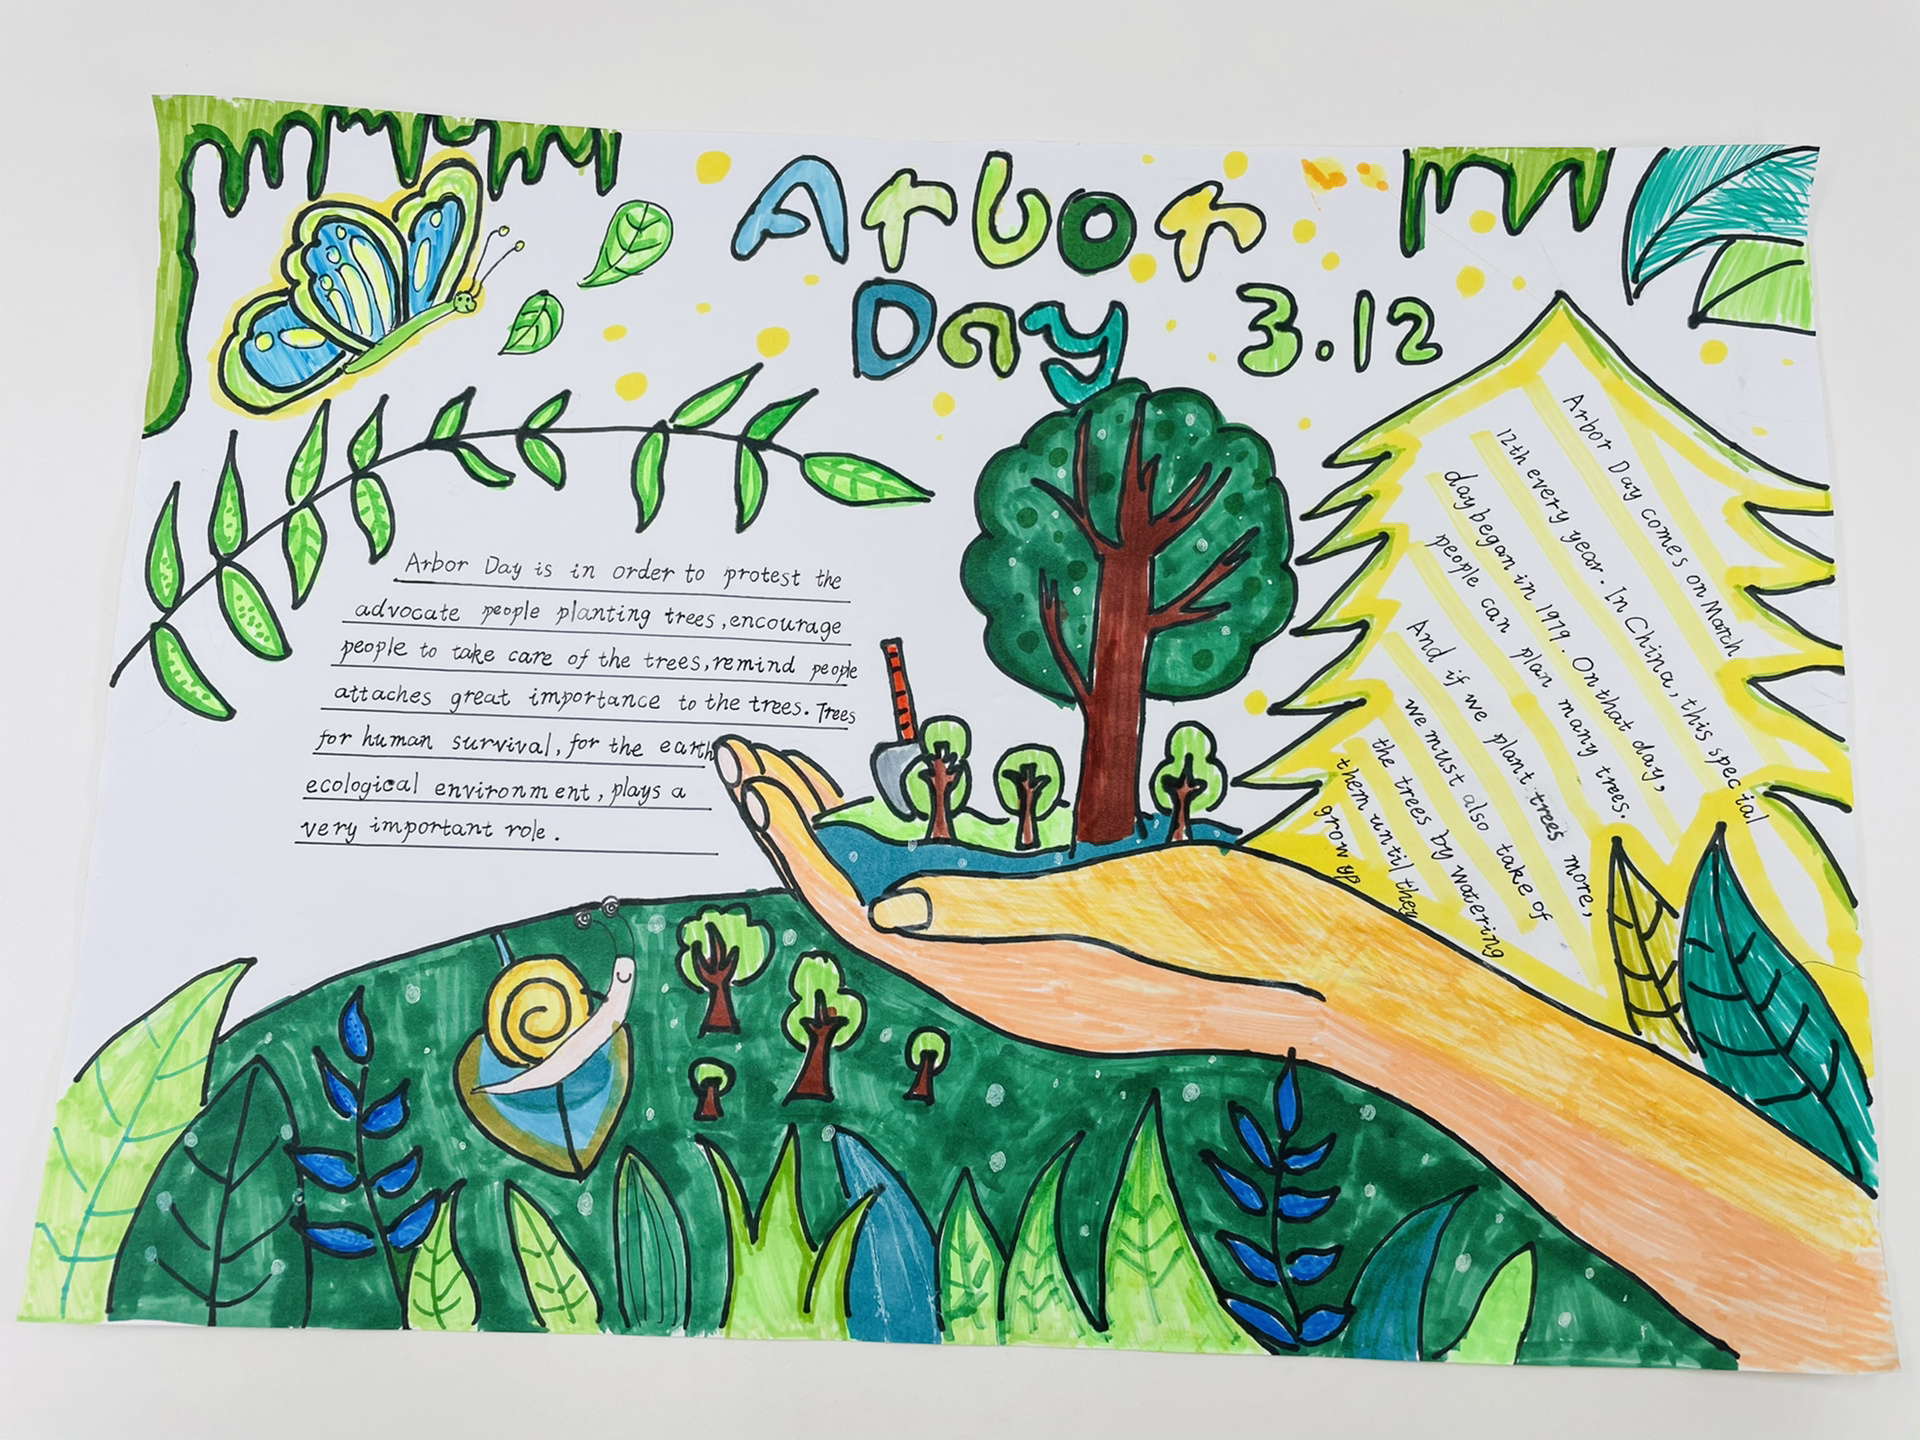 Arbor
Day 3.12
Arbor Day is in order to protest the
advocate people planting trees, encourage
people to take care of the trees, remind people
attaches great importance to the trees. Trees
for human survival, for the earth
ecological environment, plays a
very important role.
Arbor Day comes on March
12th every year. In China, this special
day began in 1979. On that day,
people can plan many trees.
And if we plant trees more,
we must also take of
the trees by watering
them until they
grow up